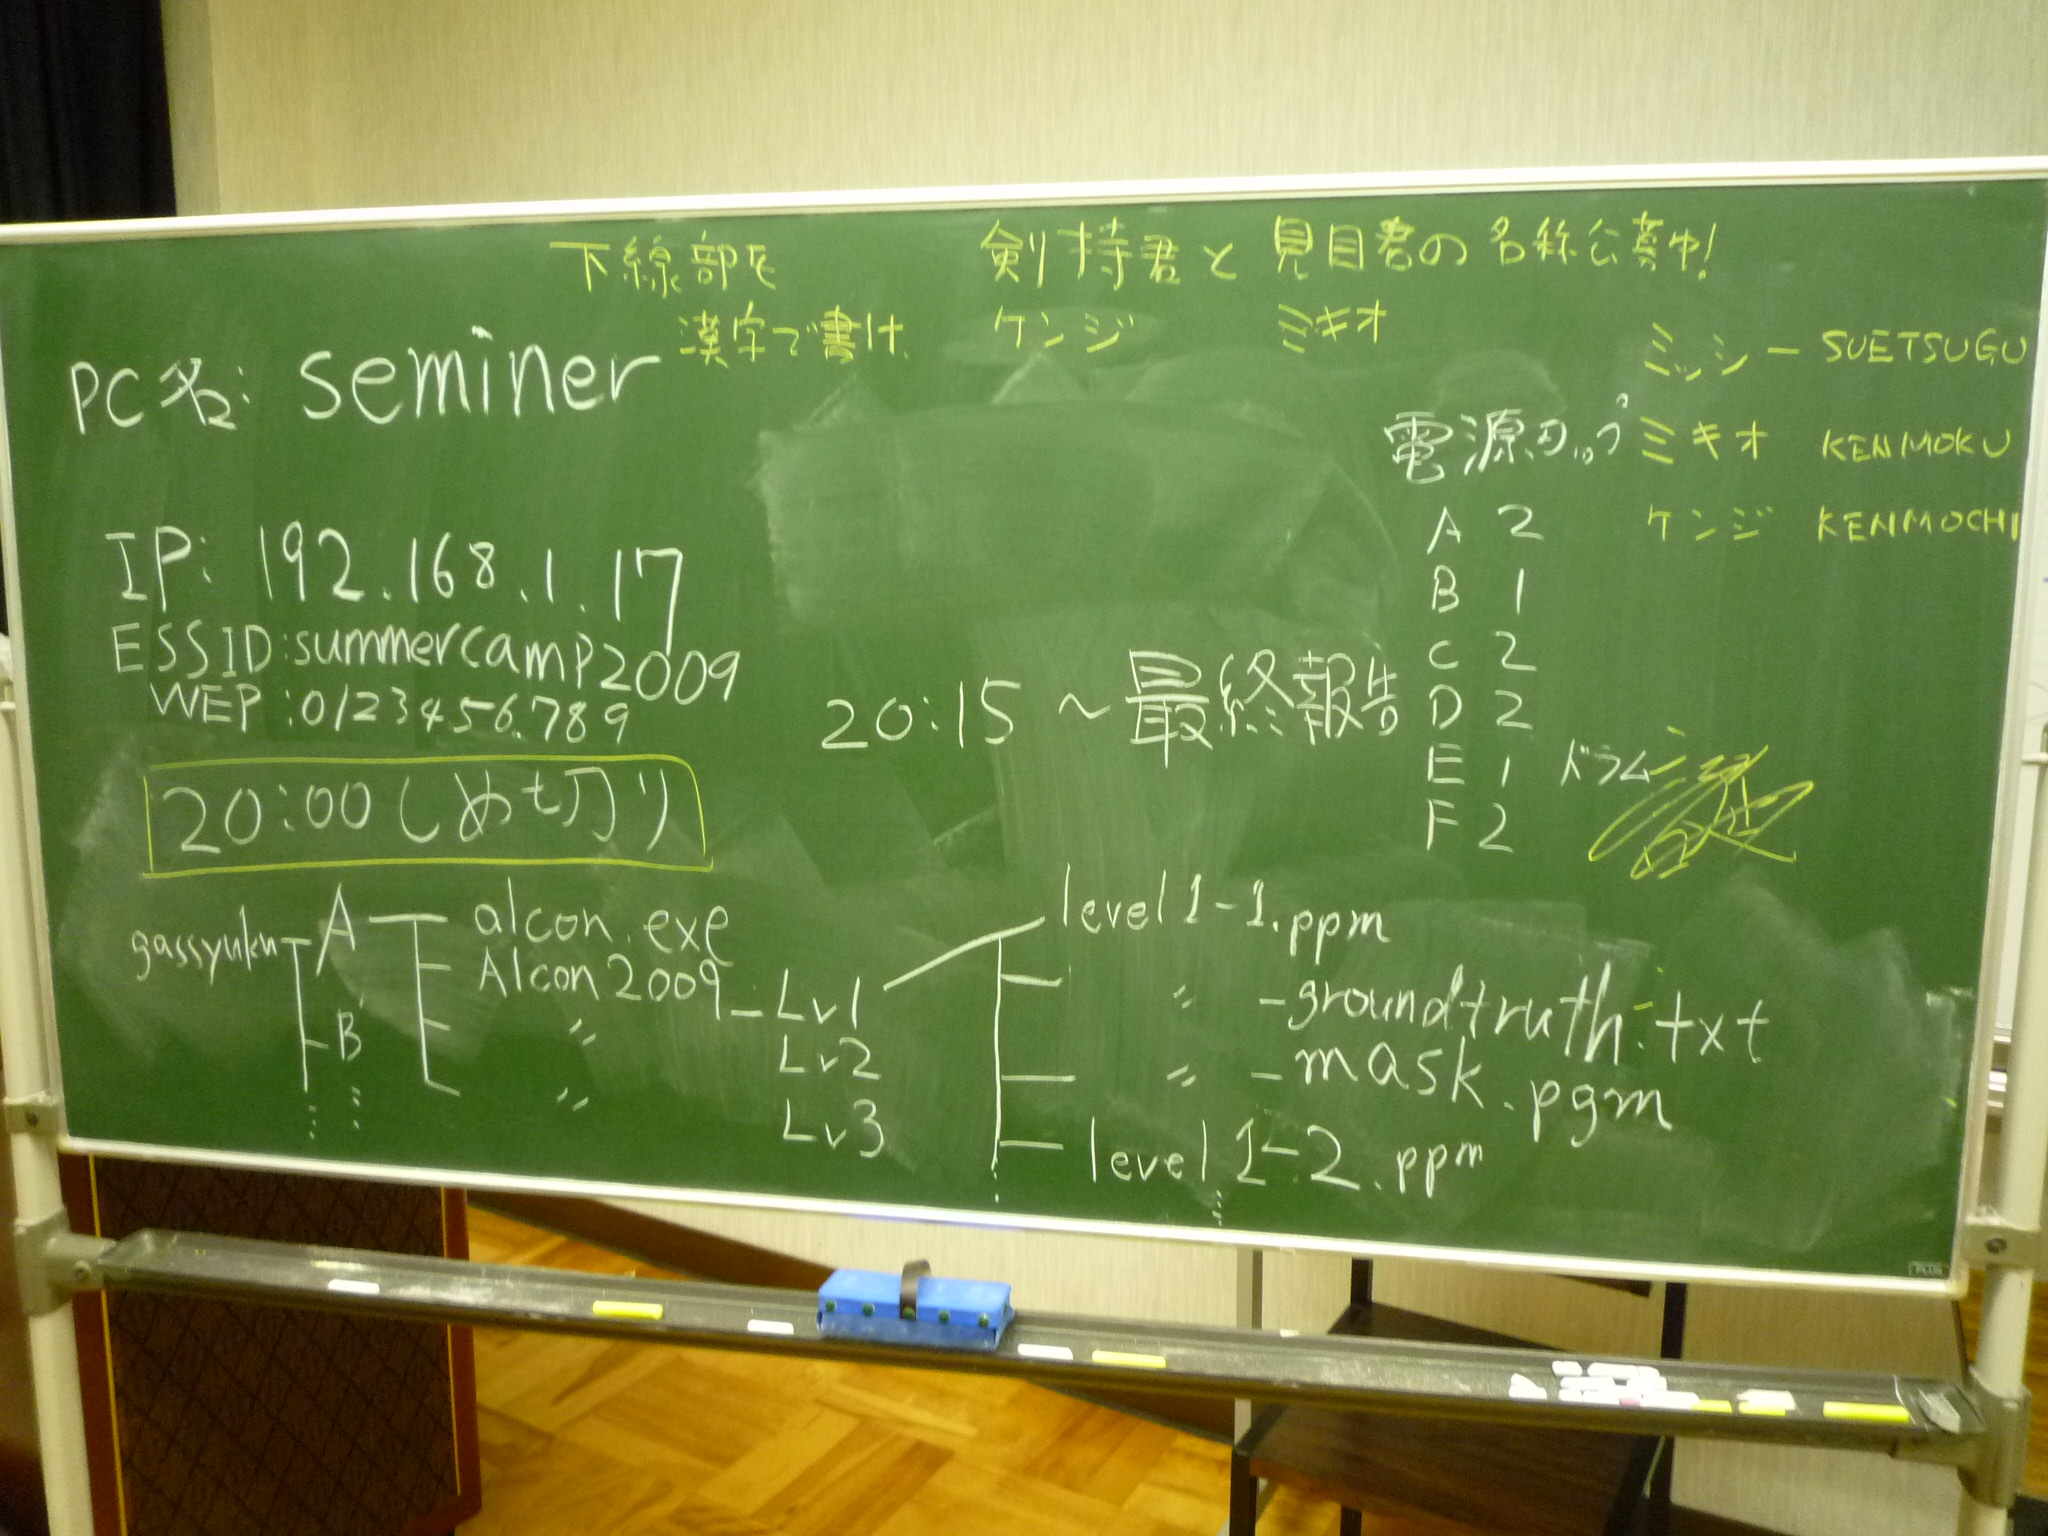 下線部を
漢字で書け.
剣持君と見目君の名称公募中!
ケンジ ミキオ
ミッシー SUETSUGU
ミキオ KENMOKU
ケンジ KENMOCHI
PC名: seminer
IP: 192.168.1.17
ESSID:summercamp2009
WEP:0123456789
20:00(しめ切り)
20:15 ~ 最終報告
電源タップ
A 2
B 1
C 2
D 2
E 1 ドラム
F 2
gassyuku A alcon.exe
Alcon2009 Lv1
B 〃 Lv2
〃 Lv3
level1-1.ppm
〃 -groundtruth.txt
〃 -mask.pgm
level1-2.ppm
PLUS